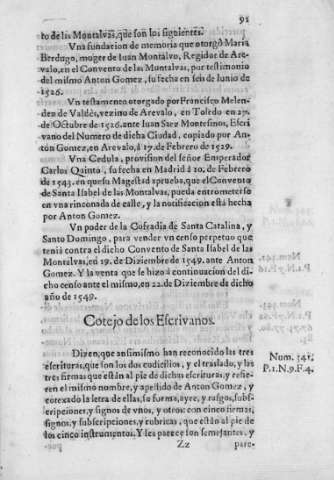 91
to de las Montalvas, que son los siguientes.
Vna fundacion de memoria que otorgò Maria
Berdugo, muger de Iuan Montalvo, Regidor de Are-
valo, en el Convento de las Montalvas, por testimonio
del mismo Anton Gomez, su fecha en seis de Iunio de
1526.
Vn testamento otorgado por Francisco Melen-
dez de Valdès, vezino de Arevalo, en Toledo en 27.
de Octubre de 1526. ante Iuan Saez Montesinos, Escri
vano del Numero de dicha Ciudad, copiado por An-
ton Gomez, en Arevalo, à 17. de Febrero de 1529.
Vna Cedula, provision del señor Emperador
Carlos Quinto, su fecha en Madrid à 20. de Febrero
de 1543. en que su Magestad aprueba, que el Convento
de Santa Isabel de las Montalvas, pueda entrometerse
en vna rinconada de calle, y la notificacion està hecha
por Anton Gomez.
Vn poder de la Cofradia de Santa Catalina, y
Santo Domingo, para vender vn censo perpetuo que
tenia contra el dicho Convento de Santa Isabel de las
Montalvas, en 19. de Diziembre de 1549. ante Anton
Gomez. Y la venta que se hizo à continuacion del di-
cho censo ante el mismo, en 22. de Diziembre de dicho
año de 1549.
Cotejo de los Escrivanos.
Dizen, que assimismo han reconocido las tres
escrituras, que son los dos cudicilos, y el traslado, y las
tres firmas que estàn al pie de dichas escrituras, y refie-
ren el mismo nombre, y apellido de Anton Gomez, y
cotexado la letra de ellas, su forma, ayre, y rasgos, subs-
cripciones, y signos de vnos, y otros con cinco firmas,
signos, y subscripciones, y rubricas, que estàn al pie de
los cinco instrumentos. Y les parece son semejantes, y
Num. 341.
P. 1. N. 9. F. 4.
Zz
pare-